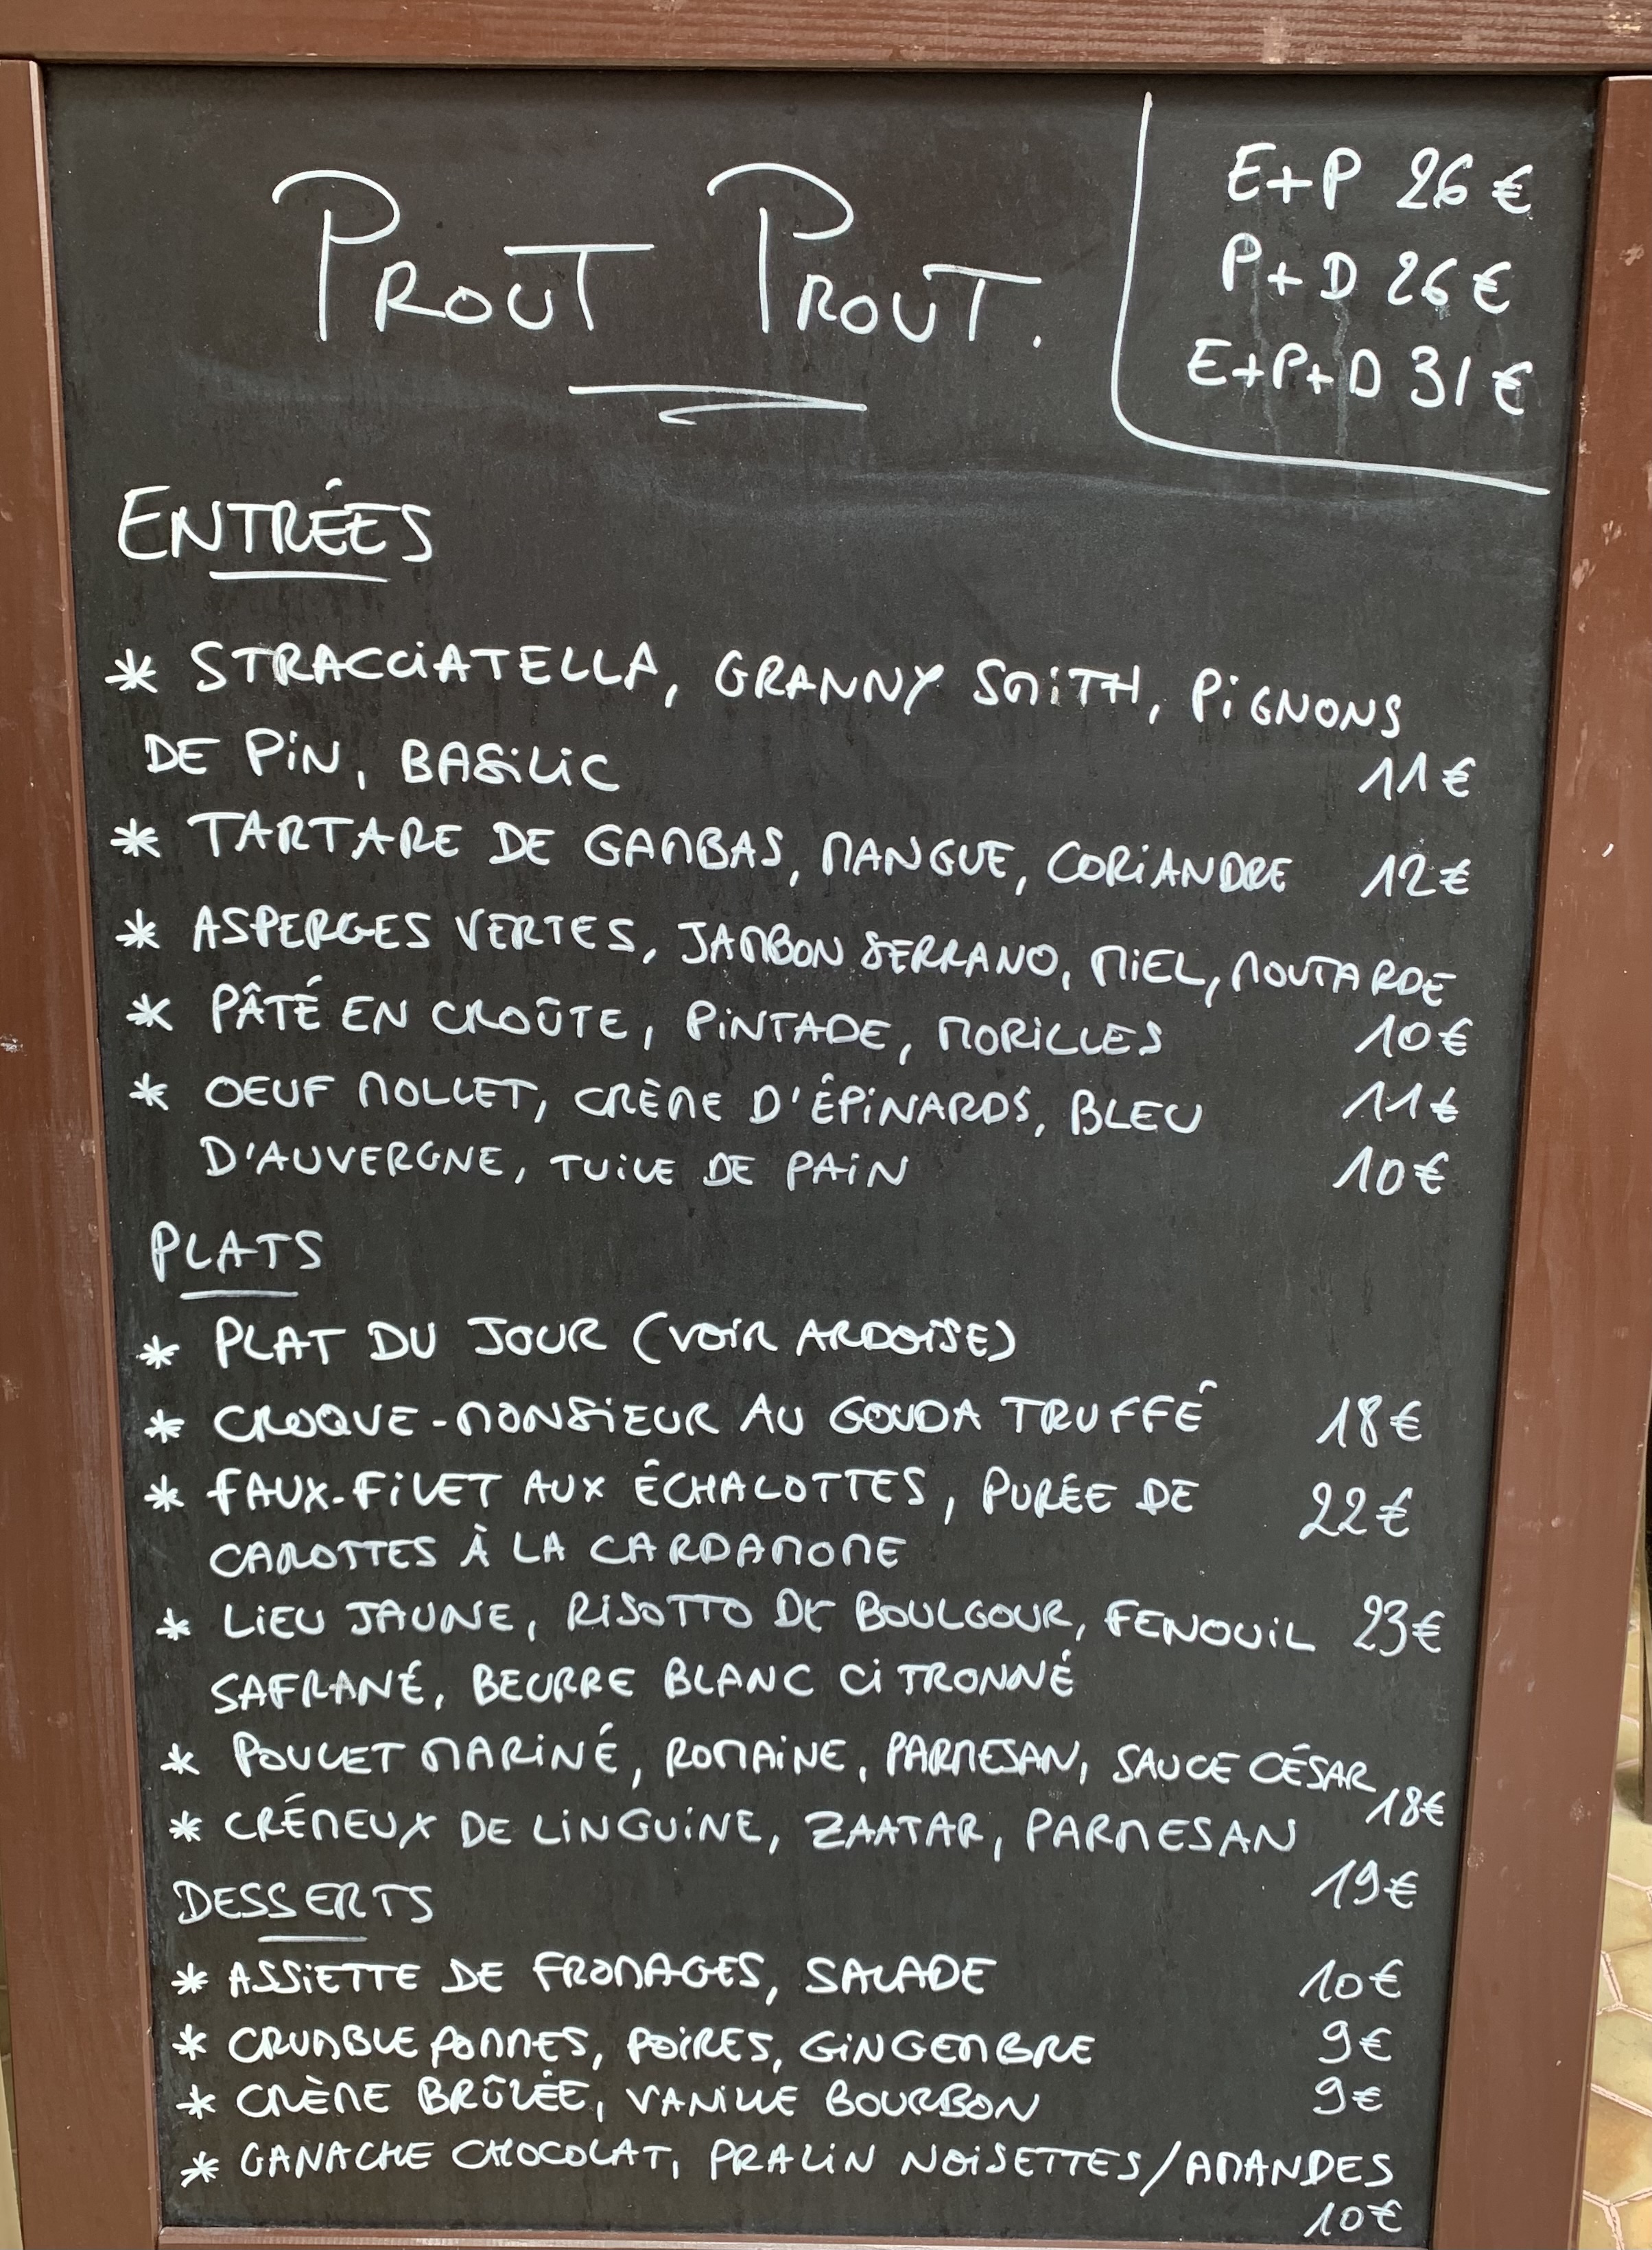 PROUT PROUT.
E+P 26 €
P+D 26 €
E+P+D 31 €
ENTRÉES
* STRACCIATELLA, GRANNY SMITH, PIGNONS
DE PIN, BASILIC 11 €
* TARTARE DE GAMBAS, MANGUE, CORIANDRE 12 €
* ASPERGES VERTES, JAMBON SERRANO, MIEL, MOUTARDE
10 €
* PÂTÉ EN CROÛTE, PINTADE, MORILLES
11 €
* OEUF MOLLET, CRÈME D'ÉPINARDS, BLEU
D'AUVERGNE, TUILE DE PAIN 10 €
PLATS
* PLAT DU JOUR (VOIR ARDOISE)
* CROQUE-MONSIEUR AU GOUDA TRUFFÉ 18 €
* FAUX-FILET AUX ÉCHALOTTES, PURÉE DE 22 €
CAROTTES À LA CARDAMOME
* LIEU JAUNE, RISOTTO DE BOULGOUR, FENOUIL 23 €
SAFRANÉ, BEURRE BLANC CITRONNÉ
* POULET MARINÉ, ROMAINE, PARMESAN, SAUCE CÉSAR
18 €
* CRÉMEUX DE LINGUINE, ZAATAR, PARMESAN
19 €
DESSERTS
* ASSIETTE DE FROMAGES, SALADE 10 €
* CRUMBLE POMMES, POIRES, GINGEMBRE 9 €
* CRÈME BRÛLÉE, VANILLE BOURBON 9 €
* GANACHE CHOCOLAT, PRALIN NOISETTES/AMANDES
10 €